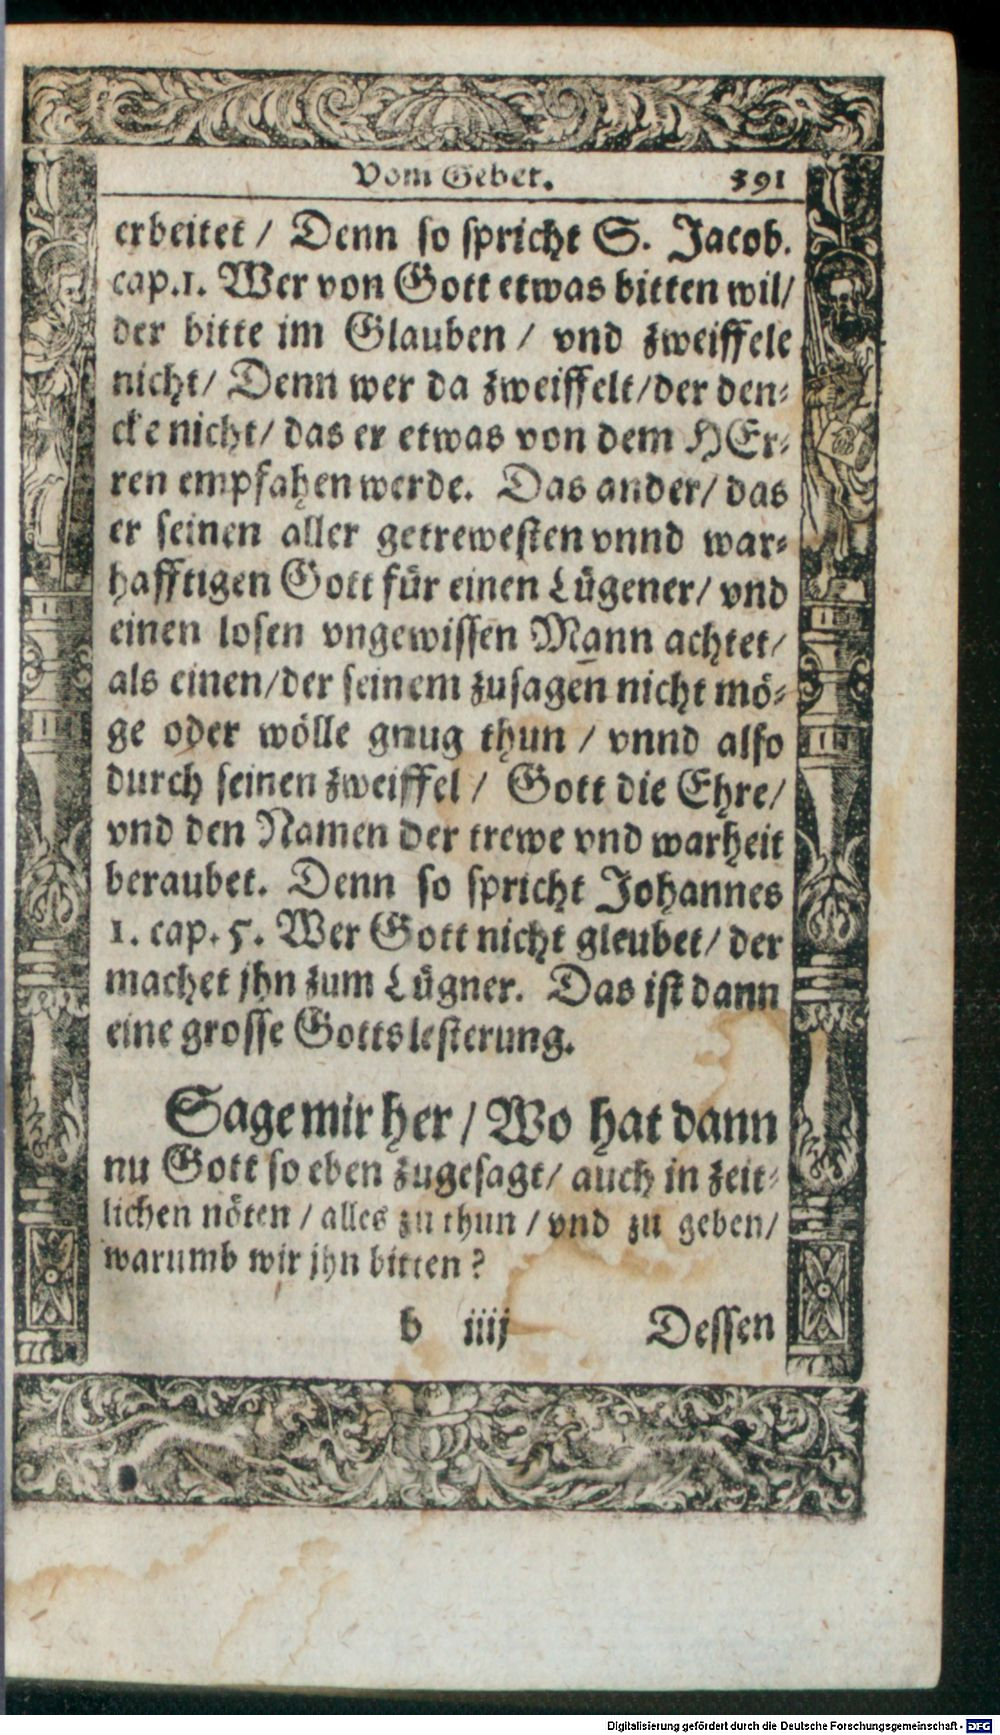 Vom Gebet. 391
erbeitet / Denn so spricht S. Jacob.
cap.1. Wer von Gott etwas bitten wil/
der bitte im Glauben / vnd zweiffele
nicht/ Denn wer da zweiffelt/der den-
cke nicht/ das er etwas von dem HEr-
ren empfahen werde. Das ander/ das
er seinen aller getrewesten vnnd war-
hafftigen Gott für einen Lügener/ vnd
einen losen vngewissen Mann achtet/
als einen/der seinem zusagen nicht mö-
ge oder wölle gnug thun / vnnd also
durch seinen zweiffel / Gott die Ehre/
vnd den Namen der trewe vnd warheit
beraubet. Denn so spricht Johannes
1. cap. 5. Wer Gott nicht gleubet/ der
machet jhn zum Lügner. Das ist dann
eine grosse Gottslesterung.
Sage mir her / Wo hat dann
nu Gott so eben zugesagt/ auch in zeit-
lichen nöten / alles zu thun / vnd zu geben/
warumb wir jhn bitten ?
b iiij Dessen
Digitalisierung gefördert durch die Deutsche Forschungsgemeinschaft - DFG